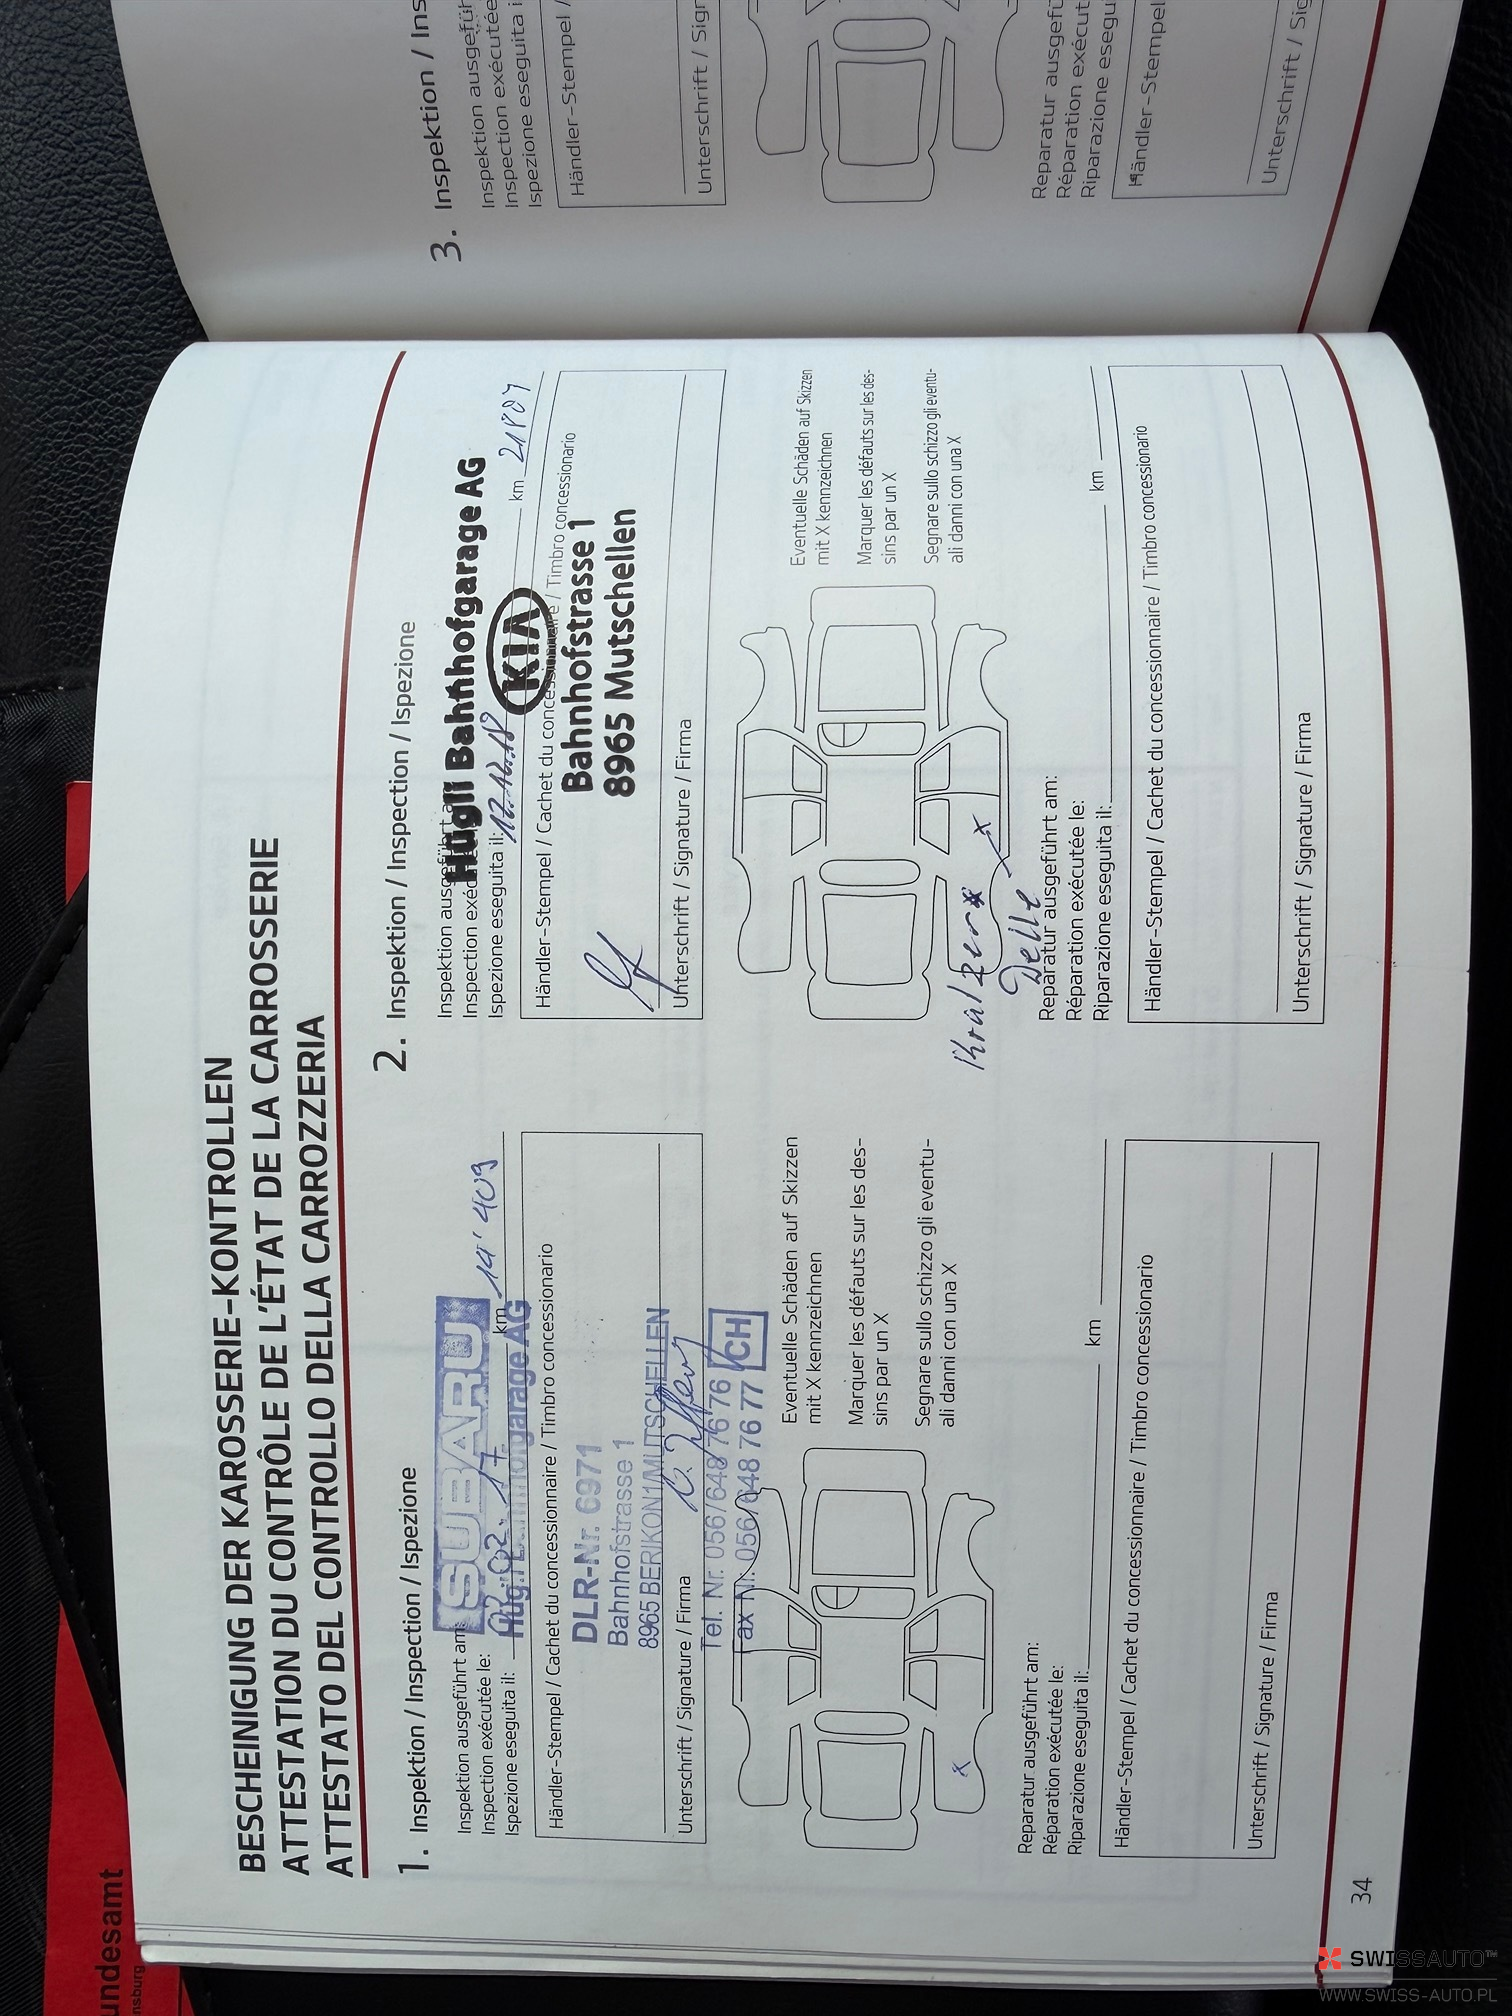 BESCHEINIGUNG DER KAROSSERIE-KONTROLLEN
ATTESTATION DU CONTRÔLE DE L'ÉTAT DE LA CARROSSERIE
ATTESTATO DEL CONTROLLO DELLA CARROZZERIA
1. Inspektion / Inspection / Ispezione
Inspektion ausgeführt am:
Inspection exécutée le:
Ispezione eseguita il:
km 14'409
SUBARU
garage AG
Händler-Stempel / Cachet du concessionnaire / Timbro concessionario
DLR-Nr. 6971
Bahnhofstrasse 1
8965 BERIKON1/MUTSCHELLEN
Unterschrift / Signature / Firma
Tel. Nr. 056/648 76 76
Fax Nr. 056/648 76 77 CH
Eventuelle Schäden auf Skizzen
mit X kennzeichnen
Marquer les défauts sur les des-
sins par un X
Segnare sullo schizzo gli eventu-
ali danni con una X
x
Reparatur ausgeführt am:
Réparation exécutée le:
Riparazione eseguita il:
km
Händler-Stempel / Cachet du concessionnaire / Timbro concessionario
Unterschrift / Signature / Firma
34
2. Inspektion / Inspection / Ispezione
Inspektion ausgeführt
Inspection
Ispezione eseguita il: 17.12.18
km 21807
Hügli Bahnhofgarage AG
KIA
Händler-Stempel / Cachet du concessionnaire / Timbro concessionario
Bahnhofstrasse 1
8965 Mutschellen
Unterschrift / Signature / Firma
Eventuelle Schäden auf Skizzen
mit X kennzeichnen
Marquer les défauts sur les des-
sins par un X
Segnare sullo schizzo gli eventu-
ali danni con una X
Kratzer x
Delle x
Reparatur ausgeführt am:
Réparation exécutée le:
Riparazione eseguita il:
km
Händler-Stempel / Cachet du concessionnaire / Timbro concessionario
Unterschrift / Signature / Firma
3. Inspektion / Ins
Inspektion ausgefüh
Inspection exécutée
Ispezione eseguita i
Händler-Stempel /
Unterschrift / Sign
Reparatur ausgefü
Réparation exécut
Riparazione esegu
Händler-Stempel
Unterschrift / Sig
undesamt
nsburg
SWISSAUTO™
WWW.SWISS-AUTO.PL